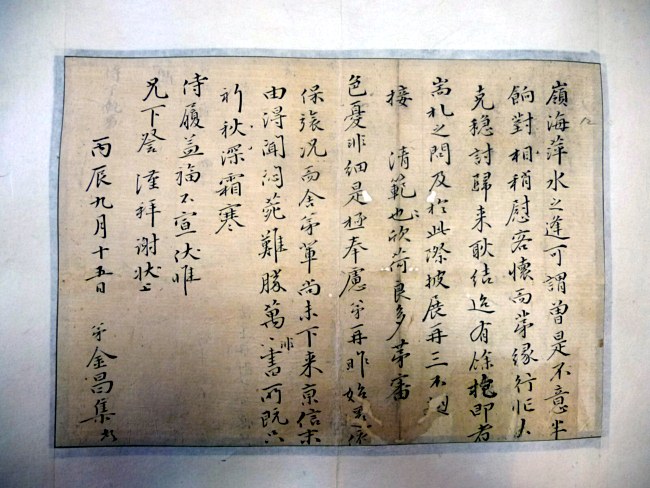 嶺海萍水之逢可謂曾是不意半
餉對相稍慰客懷而第緣行忙未
克穩討歸来耿結迨有餘抱即者
耑札之問及於此際披展再三不
接
清範也欣荷良多第審
色憂非細是極奉慮弟再昨始
保張况而舍弟輩尚未下来京信末
由淂聞悶菀難勝萬萬非書所既只
祈秋深霜寒
侍履益福不宣伏惟
兄下詧謹拜謝狀上
丙辰九月十五日 弟金昌集